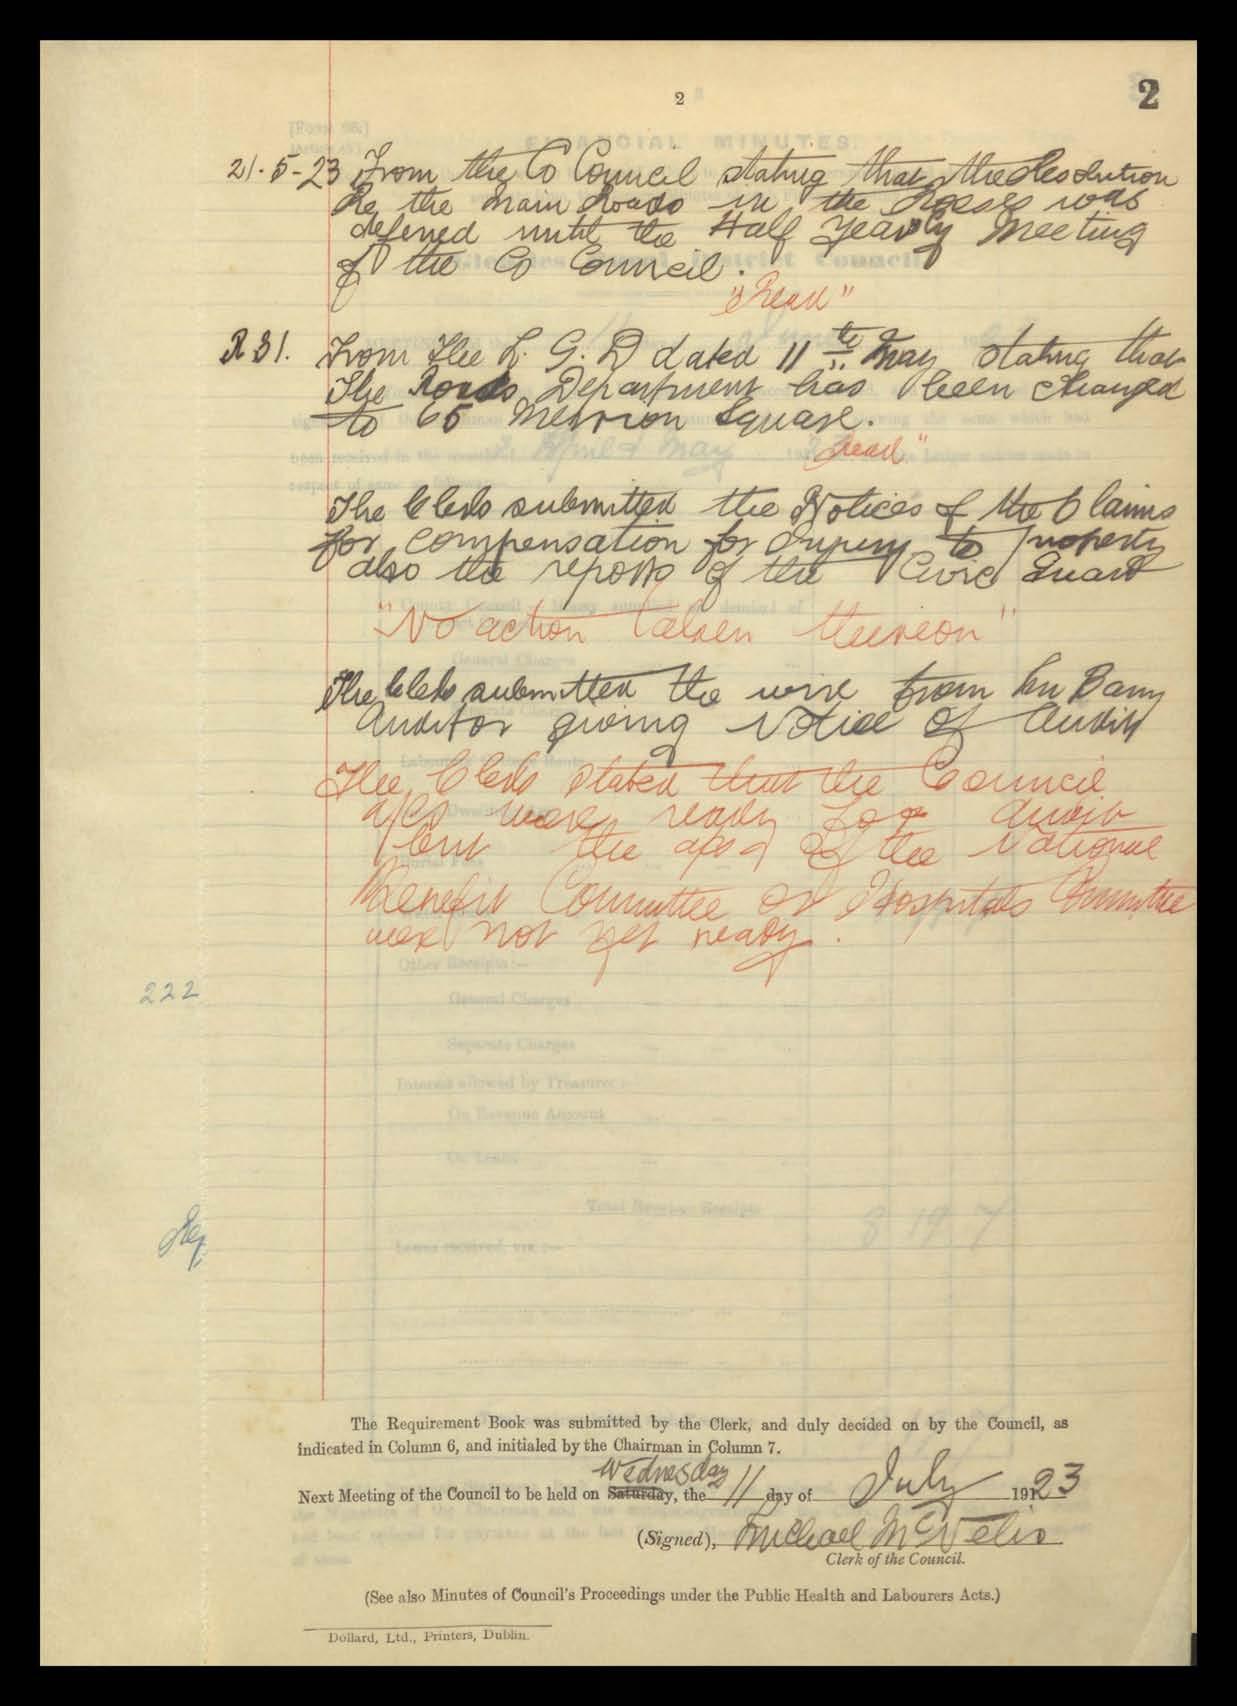 2
2
21-5-23 From the Co Council stating that the Resolution
Re the Main Roads in the Rosses was
deferred until the Half Yearly Meeting
of the Co Council.
"Read"
R 31. From the L. G. D dated 11th May stating that
The Roads Department has been changed
to 65 Merrion Square.
"Read"
The Clerk submitted the Notices of the Claims
for compensation for Injury to property
also the reports of the Civic Guard
"No action taken thereon"
The Clerk submitted the wire from Mr Barry
Auditor giving Notice of Audit
The Clerk stated that the Council
a/cs were ready for Audit
but the a/cs of the National
Benefit Committee or Hospitals Committee
were not yet ready.
222
The Requirement Book was submitted by the Clerk, and duly decided on by the Council, as
indicated in Column 6, and initialed by the Chairman in Column 7.
Wednesday
Next Meeting of the Council to be held on Saturday, the 11 day of July 1923
(Signed), Michael McNelis
Clerk of the Council.
(See also Minutes of Council's Proceedings under the Public Health and Labourers Acts.)
Dollard, Ltd., Printers, Dublin.